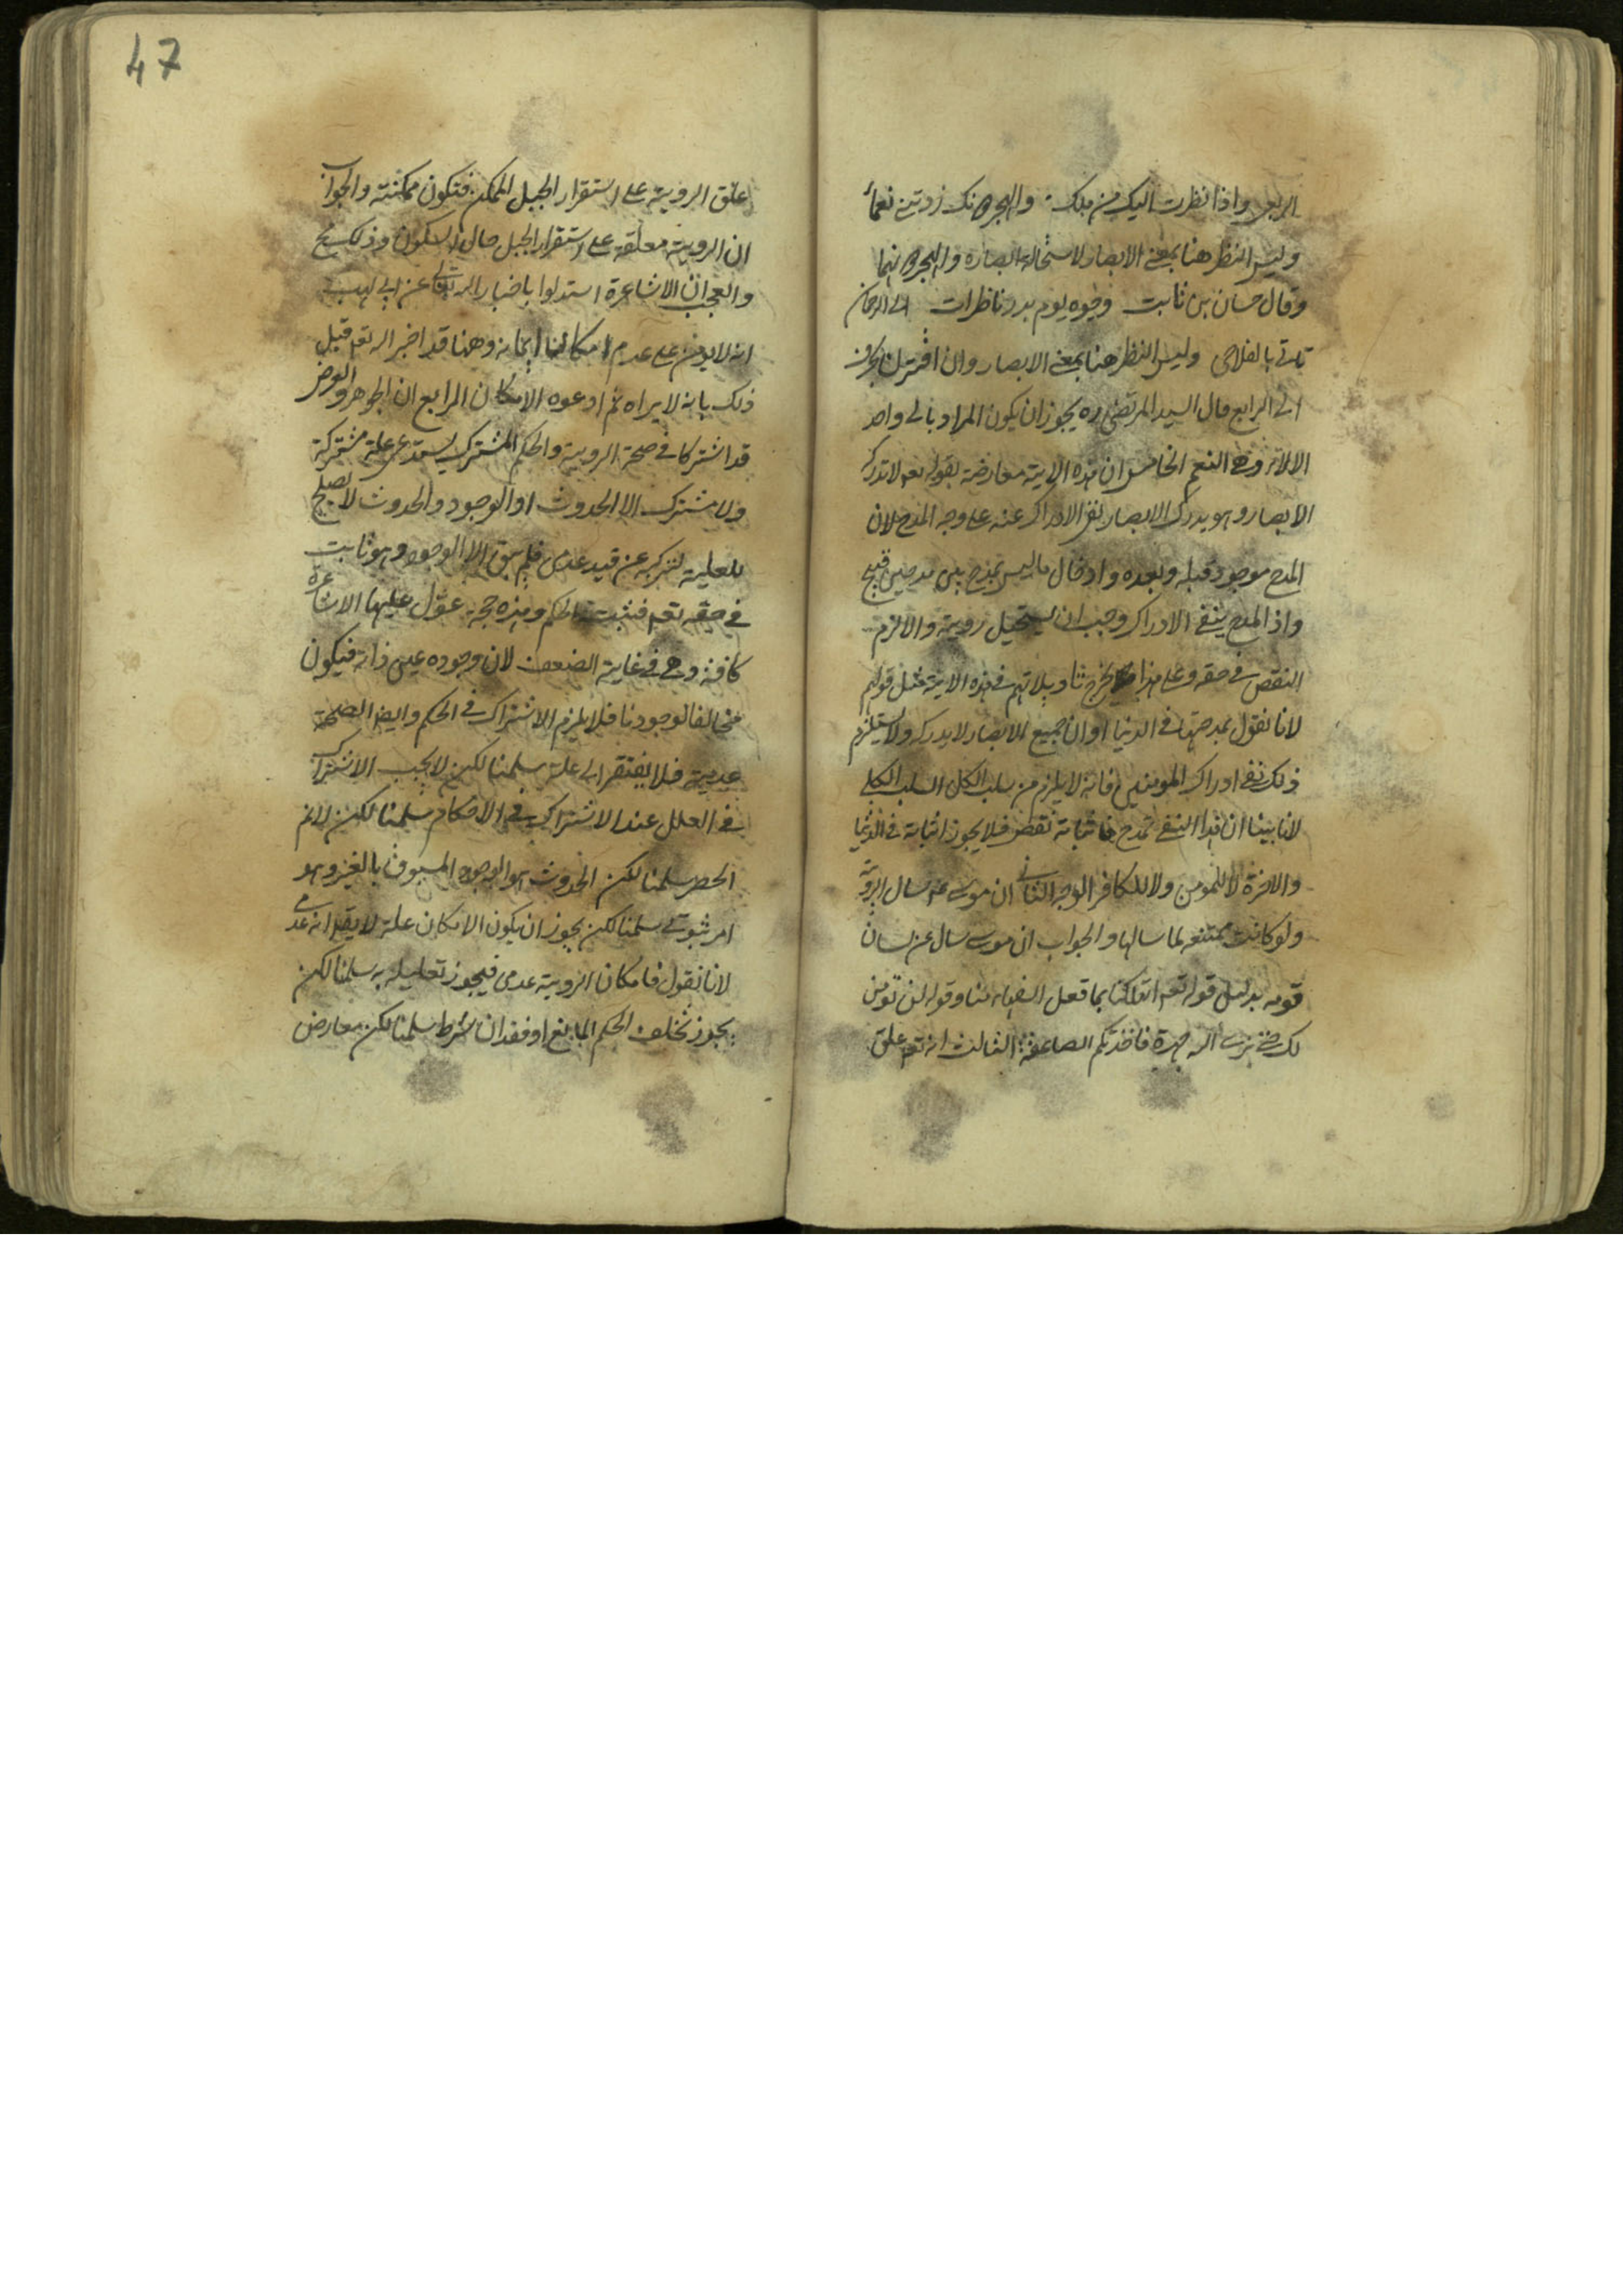 الربعي واذا نظرت اليك من ملك والبحر دونك زدتني نعما
وليس النظر هنا بمعنى الابصار لاستحالة ابصاره والبحر دونهما
وقال حسان بن ثابت وجوه يوم بدر ناظرات الى الرحمان
تاتي بالفلاح وليس النظر هنا بمعنى الابصار وان اقترن بحرف
الى الرابع قال السيد المرتضى ره يجوز ان يكون المراد بالى واحد
الالاء وهى النعم الخامس ان هذه الاية معارضة بقوله تعه لا تدركه
الابصار وهو يدرك الابصار نفى الادراك عنه على وجه المدح لان
المدح موجود قبله وبعده وادخال ما ليس بمدح بين مدحين قبيح
واذ المدح ينفي الادراك وجب ان يستحيل رويته والا لزم
النقص في حقه وعلى هذا يخرج تاويلاتهم في هذه الاية مثل قولهم
لانا نقول بمدحته في الدنيا او ان جميع الابصار لا يدركه ولا يستلزم
ذلك نفي ادراك المومنين فانه لا يلزم من سلب الكل السلب الكلي
لانا بينا ان هذا النفي تمدح فاثباته نقص فلا يجوز اثباته في الدنيا
والاخرة لا للمومن ولا للكافر الوجه الثاني ان موسى عم سال الروية
ولو كانت ممتنعه لما سالها والجواب ان موسى سال عن لسان
قومه بدليل قوله تعه اتهلكنا بما فعل السفهاء منا وقوله لن نومن
لك حتى نرى الله جهرة فاخذتكم الصاعقة الثالث انه تعه علق
47
علق الروية على استقرار الجبل الممكن فتكون ممكنة والجواب
ان الروية معلقة على استقرار الجبل حال السكون وذلك مح
والعجب ان الاشاعرة استدلوا باخبار الله تعالى عن ابي لهب
انه لا يومن على عدم امكان ايمانه وههنا قد اخبر الله تعه قبل
ذلك بانه لا يراه ثم ادعوه الامكان الرابع ان الجوهر والعرض
قد اشتركا في صحة الروية والحكم المشترك يستدعى علة مشتركة
ولا مشترك الا الحدوث او الوجود والحدوث لا يصلح
للعلية لتركبه عن قيد عدمى فلم يبق الا الوجود وهو ثابت
في حقه تعه فيثبت الحكم وهذه حجة عول عليها الاشاعرة
كافة وهى في غاية الضعف لان وجوده عين ذاته فيكون
مخالفا لوجودنا فلا يلزم الاشتراك في الحكم وايضا الصحة
عدمية فلا يفتقر الى علة سلمنا لكن لا يجب الاشتراك
في العلل عند الاشتراك في الاحكام سلمنا لكن لا نم
الحصر سلمنا لكن الحدوث هو الوجود المسبوق بالغير وهو
امر ثبوتي سلمنا لكن يجوز ان يكون الامكان علة لا يقه انه عدمى
لانا نقول فامكان الروية عدمى فيجوز تعليله به سلمنا لكن
يجوز تخلف الحكم لمانع او فقدان شرط سلمنا لكن معارض